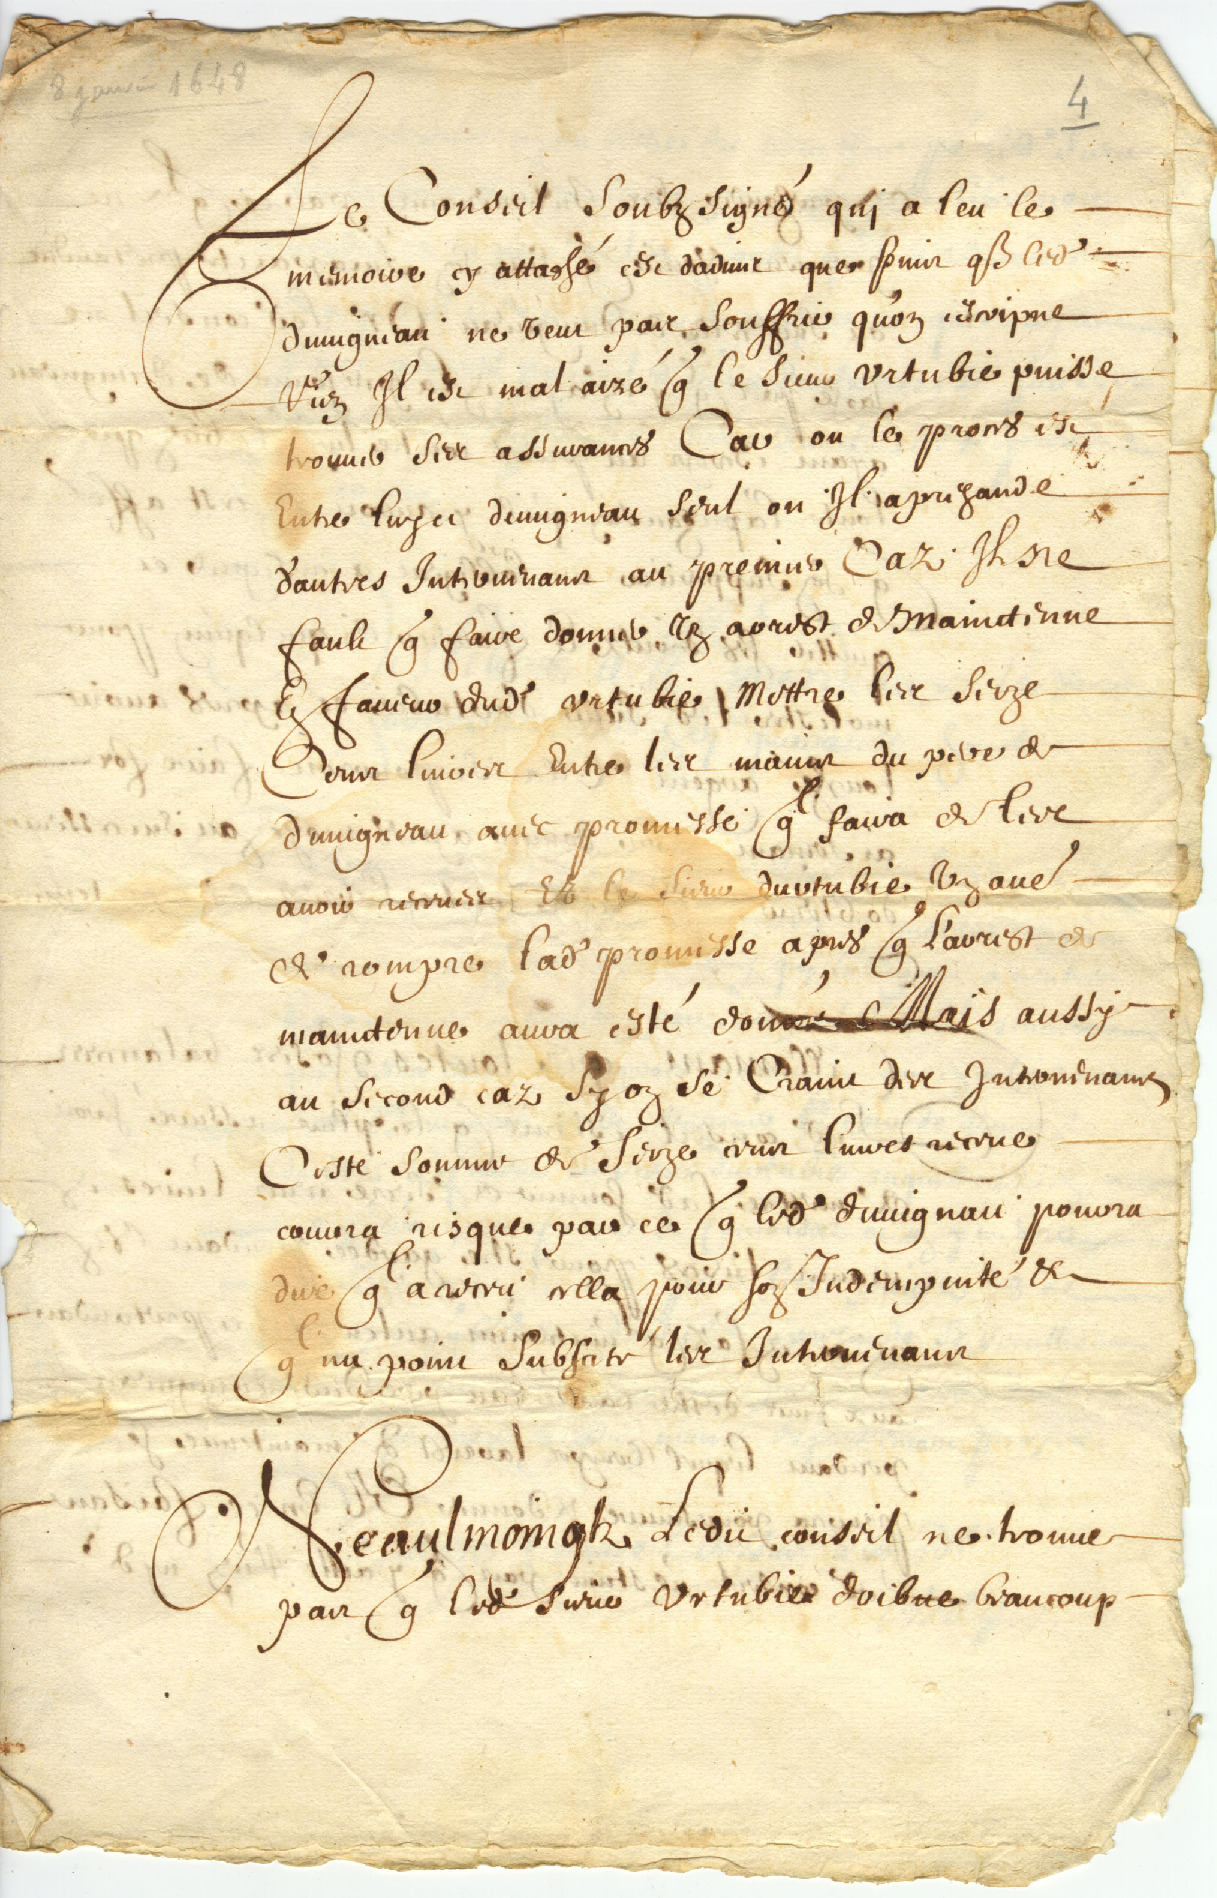 8 janvier 1648
4
Le Conseil Soubzsigné quj a leu le
memoire cy attaché est dadvis que puis q led
duvigneau ne veut pas souffrir quon escripue
rien Il est mal aizé q le sieur vrtubie puisse
trouuer ses assurances Car ou le proces est
Entre luy et duvigneau seul ou Il aprehande
dautres Intervenans au premier Caz Il ne
fault q faire donner un arrest de Mainctenue
En faueur dud vrtubie Mettre les seize
Cens liures Entre les mains du pere de
duvigneau auec promesse ql faira de les
auoir receues Et le sieur durtubie
de rompre lad promesse apres q larrest de
mainctenue aura esté donné Mais aussy
au second caz sy on se Craint des Intervenans
Ceste somme de seize cens liures receue
courra risque par ce q led duvignau pourra
dire ql a receu cella pour son Indempnité et
ql na point Subscité les Intervenans
Neaulmoings Ledit conseil ne trouue
pas q led sieur vrtubie doibue beaucoup